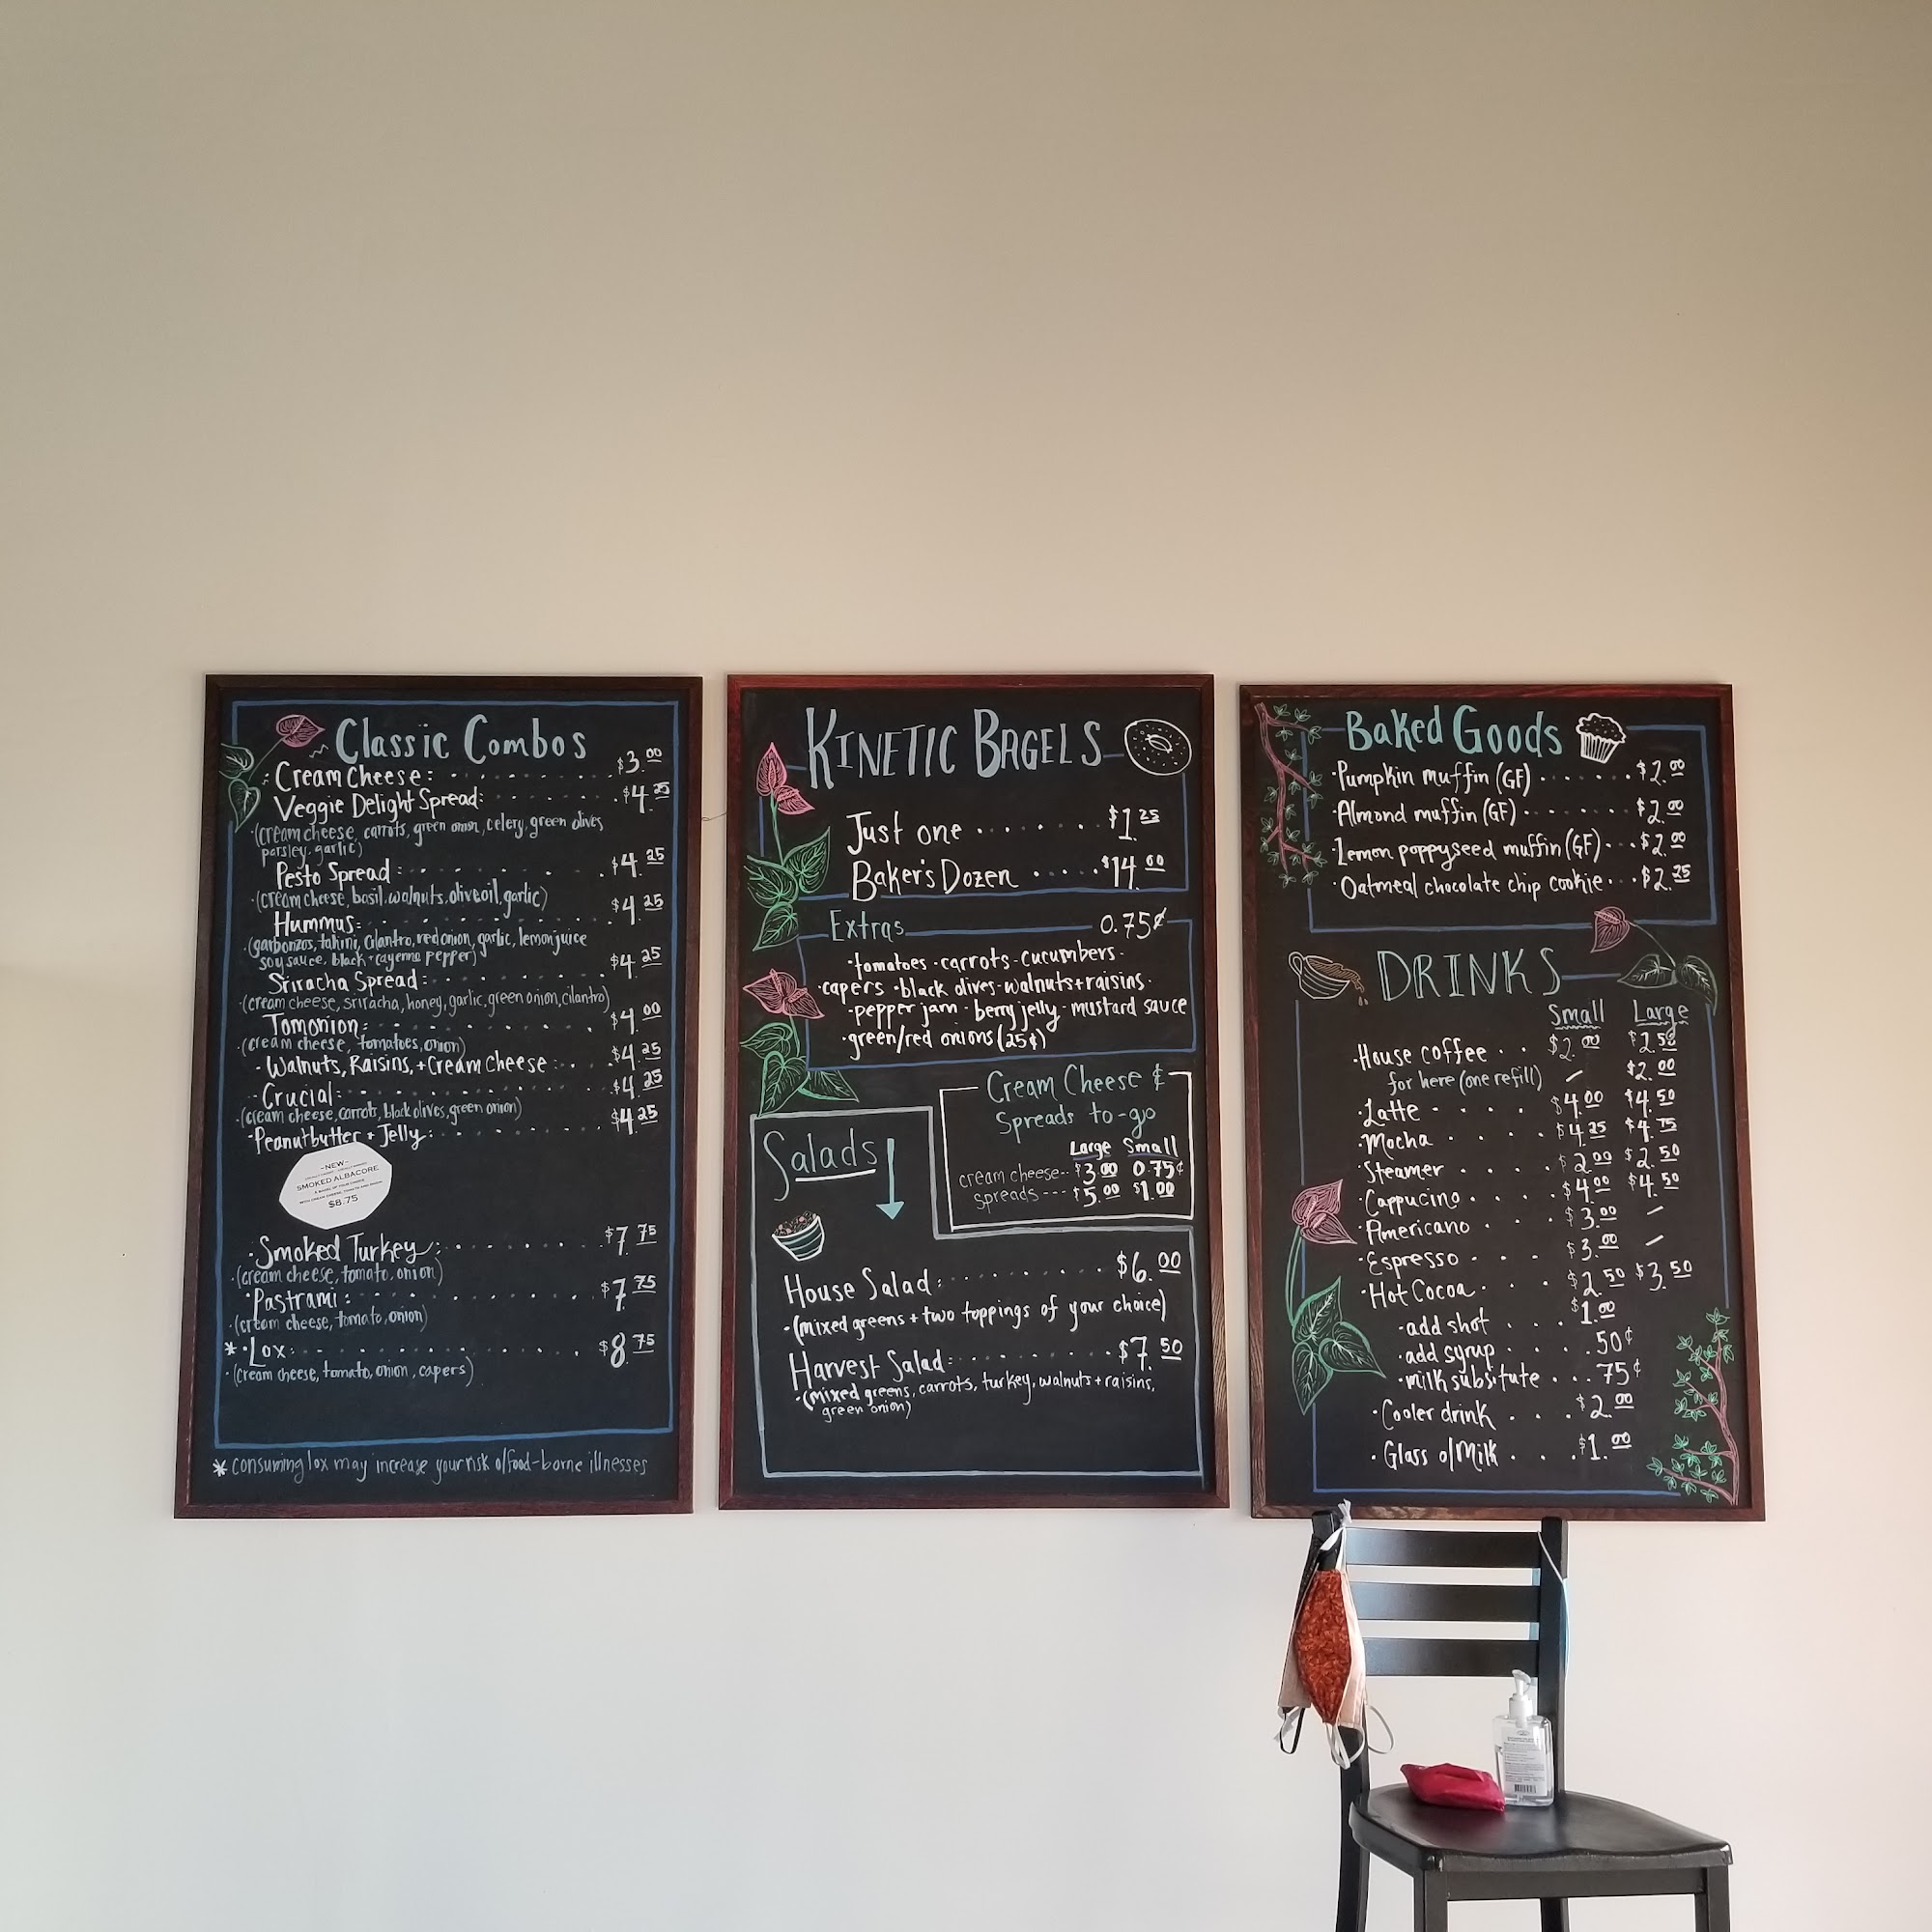 Classic Combos
Cream Cheese: $3.00
Veggie Delight Spread: $4.25
(cream cheese, carrots, green onion, celery, green olives
parsley, garlic)
Pesto Spread: $4.25
(cream cheese, basil, walnuts, olive oil, garlic)
Hummus: $4.25
(garbonzos, tahini, cilantro, red onion, garlic, lemon juice
soy sauce, black + cayenne pepper)
Sriracha Spread: $4.25
(cream cheese, sriracha, honey, garlic, green onion, cilantro)
Tomonion: $4.00
(cream cheese, tomatoes, onion)
Walnuts, Raisins, + Cream Cheese: $4.25
Crucial: $4.25
(cream cheese, carrots, black olives, green onion)
Peanutbutter + Jelly: $4.25
-NEW-
SMOKED ALBACORE
A BAGEL OF YOUR CHOICE
WITH CREAM CHEESE, TOMATO AND ONION
$8.75
Smoked Turkey: $7.75
(cream cheese, tomato, onion)
Pastrami: $7.75
(cream cheese, tomato, onion)
* Lox: $8.75
(cream cheese, tomato, onion, capers)
* consuming lox may increase your risk o/food-borne illnesses
KINETIC BAGELS
Just one $1.25
Baker's Dozen $14.00
Extras 0.75¢
·tomatoes ·carrots·cucumbers·
·capers ·black olives·walnuts+raisins·
·pepper jam· berry jelly· mustard sauce
·green/red onions (25¢)
Cream Cheese &
Spreads to-go
Large Small
cream cheese-- $3.00 0.75¢
spreads --- $5.00 $1.00
Salads
House Salad: $6.00
(mixed greens + two toppings of your choice)
Harvest Salad: $7.50
(mixed greens, carrots, turkey, walnuts + raisins,
green onion)
Baked Goods
Pumpkin muffin (GF) $2.00
Almond muffin (GF) $2.00
Lemon poppyseed muffin (GF) $2.00
Oatmeal chocolate chip cookie $2.25
DRINKS
Small Large
House coffee $2.00 $2.50
for here (one refill) / $2.00
Latte $4.00 $4.50
Mocha $4.25 $4.75
Steamer $2.00 $2.50
Cappucino $4.00 $4.50
Americano $3.00 /
Espresso $3.00 /
Hot Cocoa $2.50 $3.50
add shot $1.00
add syrup .50¢
milk subsitute 75¢
Cooler drink $2.00
Glass o/Milk $1.00